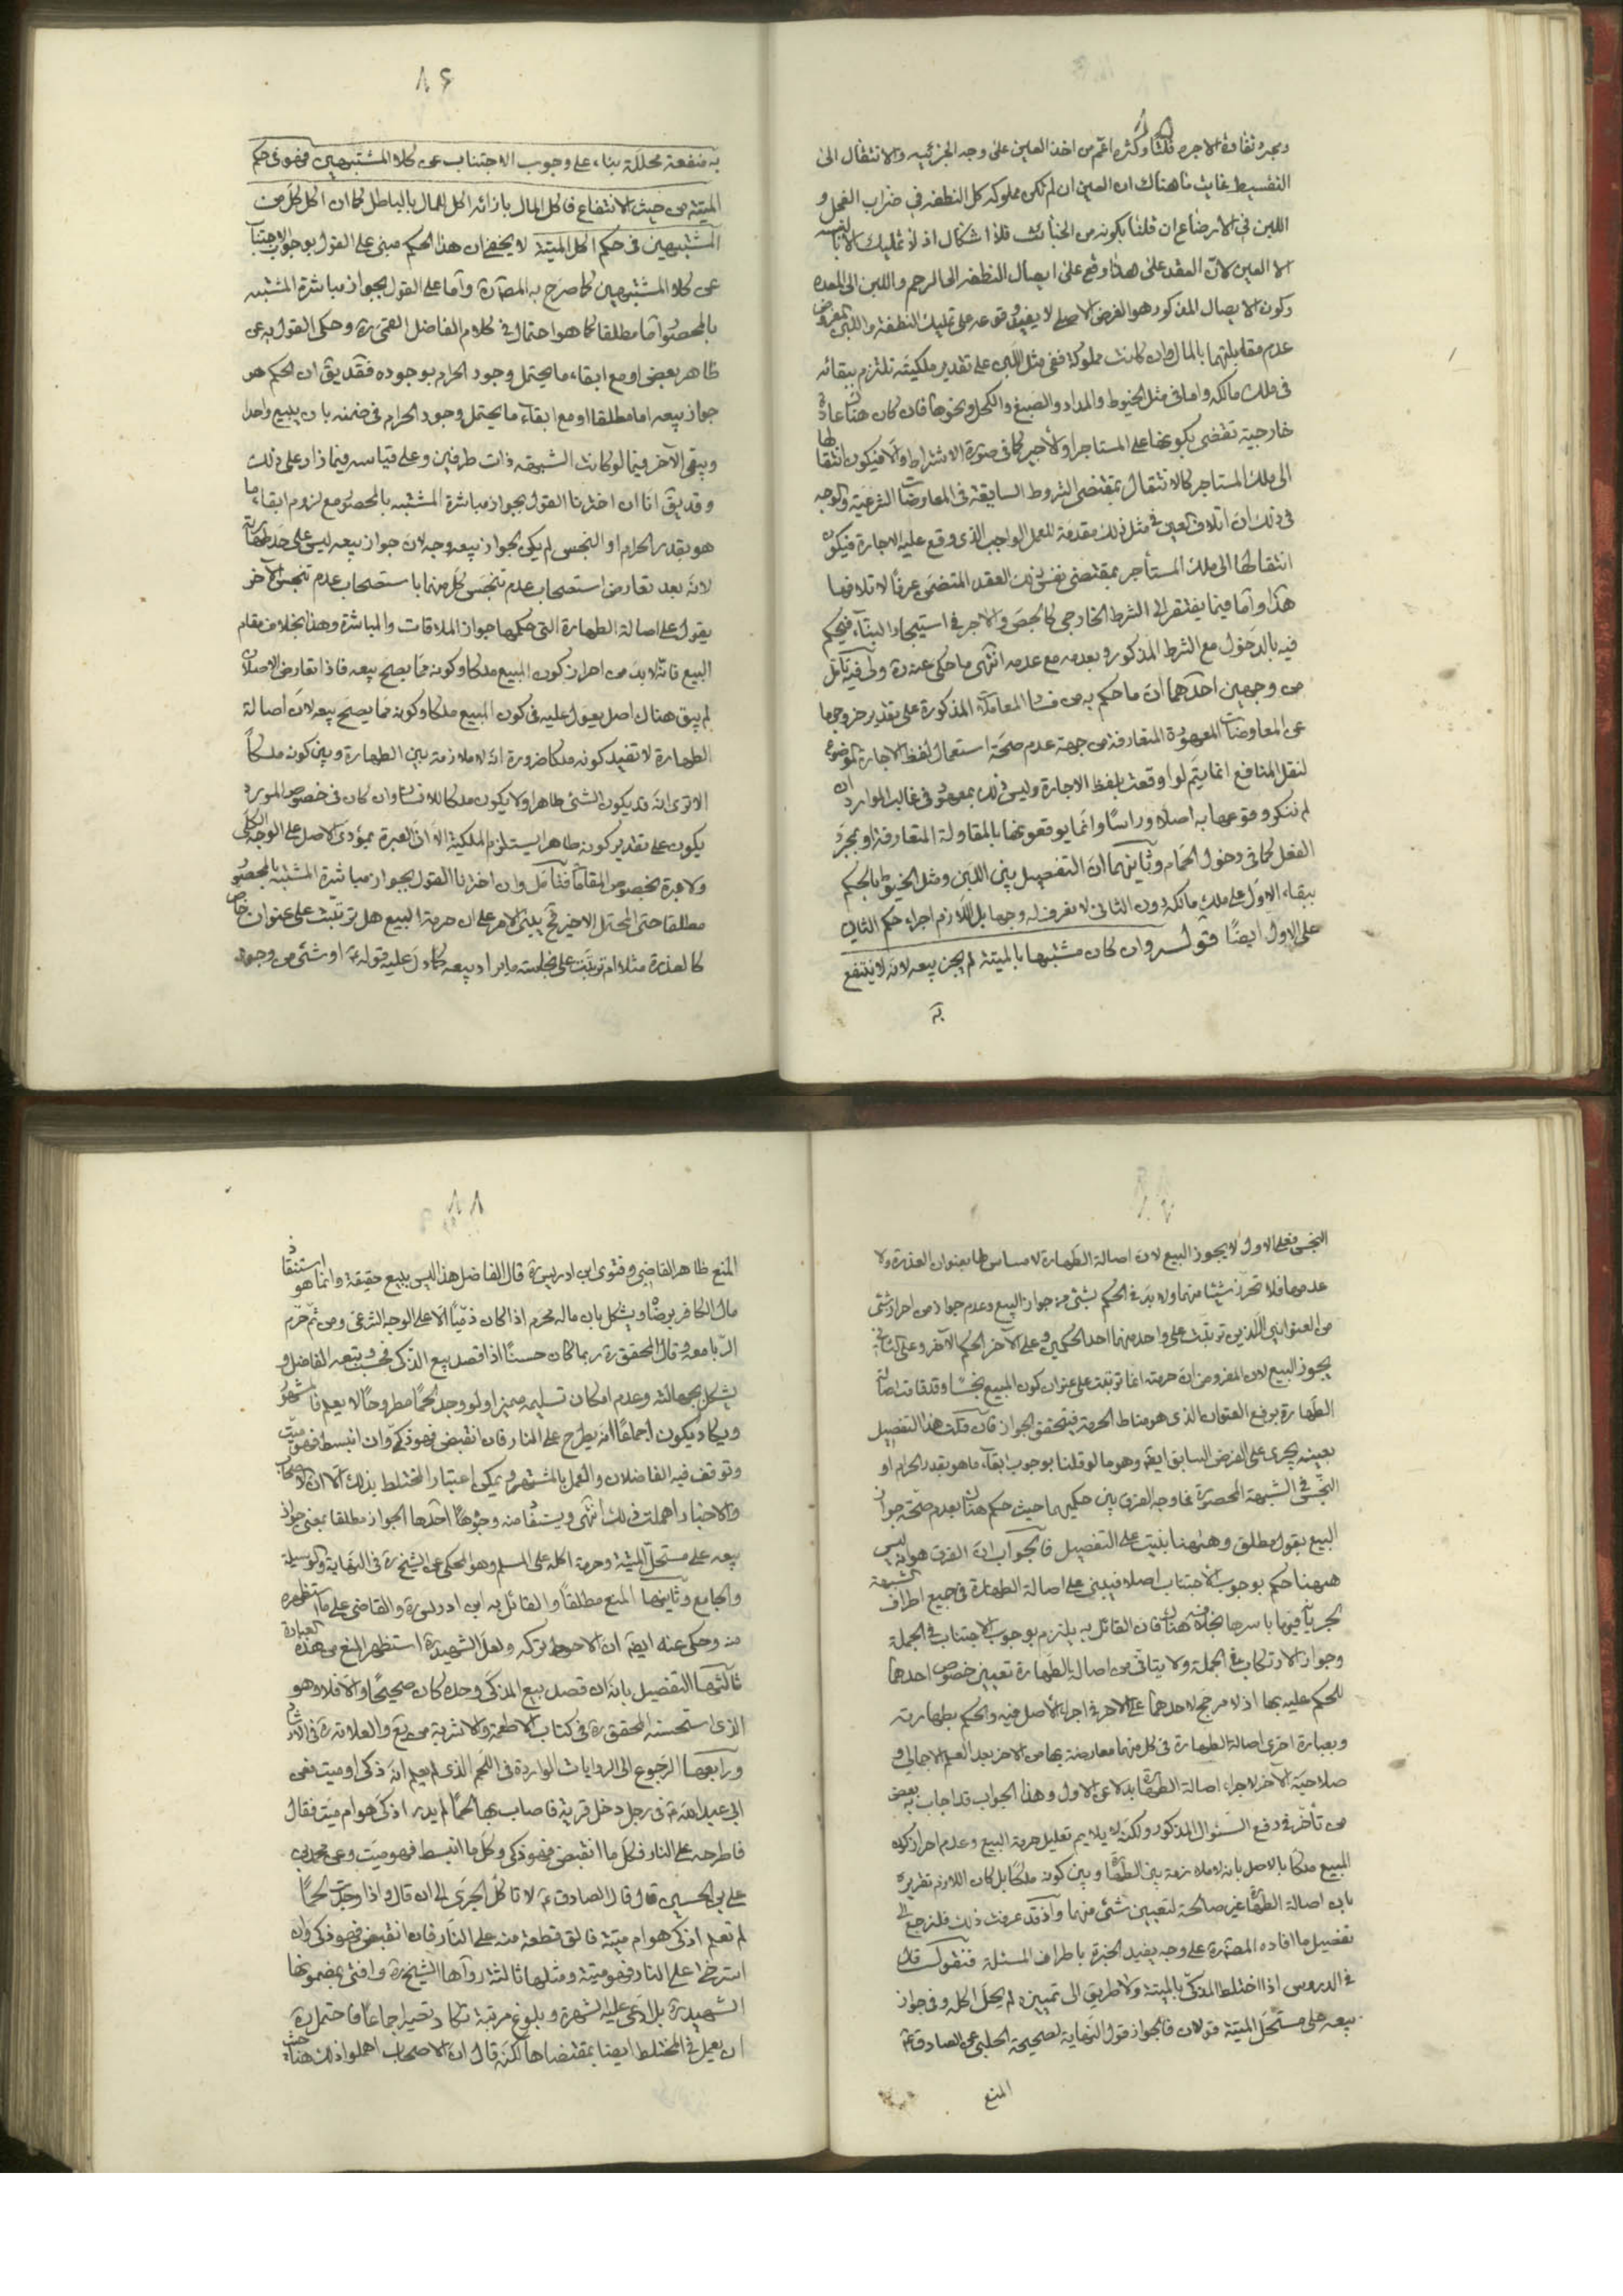 ومجرد تفاوت الاجرة قلة وكثرة اعم من اخذ العين على وجه الجزئية والانتقال الى
التقسيط بغايت ما هناك ان العين ان لم تكن مملوكة كل النطفة في ضراب الفحل و
اللبن في الارضاع ان قلنا بكونه من الخبائث فلا اشكال اذ لا تمليك الا بالنسبة
الا العين لان العقد على هذا وقع على ايصال النطفة الى الرحم واللبن الى المعدة
وكون الايصال المذكور هو الغرض الاصلي لا يفيد وقوعه على تمليك النطفة واللبن المفروض
عدم مقابلتهما بالمال وان كانت مملوكة ففي مثل اللبن على تقدير ملكيته نلتزم ببقائه
في ملك مالكه واما في مثل الخيوط والمداد والصبغ والكحل ونحوها فان كان هناك عادة
خارجية تقضي بكونها على المستاجر او الاجير كما في صورة الاشتراط والا فيكون انتقالها
الى ملك المستاجر كالانتقال بمقتضى الشروط السابقة في المعاوضات الشرعية والوجه
في ذلك ان اتلاف العين في مثل ذلك مقدمة للعمل الواجب الذي وقع عليه الاجارة فيكون
انتقالها الى ملك المستأجر بمقتضى نفس ذلك العقد المتضمن عرفا لاتلافها
هذا واما فيما يفتقر الى الشرط الخارجي كالجص والاجر في استيجار البناء فيحكم
فيه بالدخول مع الشرط المذكور وبعدمه مع عدمه انتهى ما حكى عنه ره ولى فيه تأمل
من وجهين احدهما ان ما حكم به من فساد المعاملة المذكورة على تقدير خروجها
عن المعاوضات المعهودة المتعارفة من جهة عدم صحة استعمال لفظ الاجارة الموضوع
لنقل المنافع انما يتم لو اوقعت بلفظ الاجارة وليس ذلك بمعهود في غالب الموارد ان
لم ننكر وقوعها به اصلا وراسا وانما يوقعونها بالمقاولة المتعارفة او بمجرد
الفعل كما في دخول الحمام وثانيهما ان التفصيل بين اللبن ومثل الخيوط بالحكم
ببقاء الاول على ملك مالكه دون الثاني لا نعرف له وجها بل اللازم اجراء حكم الثاني
على الاول ايضا قوله وان كان مشتبها بالميتة لم يجز بيعه لانه لا ينتفع
به
٨٦
به منفعة محللة بناء على وجوب الاجتناب عن كلا المشتبهين فهو في حكم
الميتة من حيث الانتفاع فاكل المال بازائه اكل المال بالباطل كما ان اكل كل من
المشتبهين في حكم اكل الميتة لا يخفى ان هذا الحكم مبنى على القول بوجوب الاجتناب
عن كلا المشتبهين كما صرح به المص ره واما على القول بجواز مباشرة المشتبه
بالمحصور اما مطلقا كما هو احتمال في كلام الفاضل القمى ره وحكى القول به عن
ظاهر بعض او مع ابقاء ما يحتمل وجود الحرام بوجوده فقد يق ان الحكم هو
جواز بيعه اما مطلقا او مع ابقاء ما يحتمل وجود الحرام في ضمنه بان يبيع واحدا
ويبقى الآخر فيما لو كانت الشبهة ذات طرفين وعلى قياسه فيما زاد على ذلك
وقد يق انا ان اخترنا القول بجواز مباشرة المشتبه بالمحصور مع لزوم ابقاء ما
هو بقدر الحرام او النجس لم يكن لجواز بيعه وجه لان جواز بيعه ليس على حد طهارته
لانه بعد تعارض استصحاب عدم تنجس كل منهما باستصحاب عدم تنجس الاخر
يعول على اصالة الطهارة التي حكمها جواز الملاقات والمباشرة وهذا بخلاف مقام
البيع فانه لا بد من احراز كون المبيع ملكا وكونه مما يصح بيعه فاذا تعارض الاصلان
لم يبق هناك اصل يعول عليه في كون المبيع ملكا وكونه مما يصح بيعه لان اصالة
الطهارة لا تفيد كونه ملكا ضرورة انه لا ملازمة بين الطهارة وبين كونه ملكا
الا ترى انه قد يكون الشئ طاهرا ولا يكون ملكا للانسان وان كان في خصوص المورد
يكون على تقدير كونه طاهرا يستلزم الملكية الا ان العبرة بمؤدى الاصل على الوجه الكلى
ولا عبرة بخصوص المقام فتأمل وان اخترنا القول بجواز مباشرة المشتبه بالمحصور
مطلقا حتى المحتمل الاخير فح يبنى الامر على ان حرمة البيع هل ترتبت على عنوان خاص
كالعذرة مثلا ام ترتبت على نجاسة ما يراد بيعه كما دل عليه قوله ع او شئ من وجوه
النجس فعلى الاول لا يجوز البيع لان اصالة الطهارة لا مساس لها بعنوان العذرة ولا
عدمها فلا تحرز شيئا منهما ولا بد في الحكم بشئ من جواز البيع وعدم جوازه من احراز شئ
من العنوانين اللذين ترتبت على واحد منهما احد الحكمين وعلى الآخر الحكم الآخر وعلى الثاني
يجوز البيع لان المفروض ان حرمته انما ترتبت على عنوان كون المبيع نجسا وقد قامت اصالة
الطهارة برفع العنوان الذي هو مناط الحرمة فيتحقق الجواز فان قلت هذا التفصيل
بعينه يجرى على الفرض السابق ايضا وهو ما لو قلنا بوجوب ابقاء ما هو بقدر الحرام او
النجس في الشبهة المحصورة فما وجه الفرق بين حكميهما حيث حكم هناك بعدم صحة جواز
البيع بقول مطلق وههنا بنيت على التفصيل فالجواب ان الفرق هو انه ليس
ههنا حكم بوجوب الاجتناب اصلا فيبنى على اصالة الطهارة في جميع اطراف الشبهة
لجريانها فيها باسرها بخلافه هناك فان القائل به يلتزم بوجوب الاجتناب في الجملة
وجواز الارتكاب في الجملة ولا يتاتى من اصالة الطهارة تعيين خصوص احدهما
للحكم عليه بها اذ لا مرجح لاحدهما على الاخر في اجراء الاصل فيه والحكم بطهارته
وبعبارة اخرى اصالة الطهارة في كل منهما معارضة بها من الاخر بعد العلم الاجمالي و
صلاحية الآخر لاجراء اصالة الطهارة بدلا عن الاول وهذا الجواب قد اجاب به بعض
من تأخر في دفع السئوال المذكور ولكنه لا يلايم تعليل حرمة البيع وعدم احراز كون
المبيع ملكا بالاصل بانه لا ملازمة بين الطهارة وبين كونه ملكا بل كان اللازم تقريره
بان اصالة الطهارة غير صالحة لتعيين شئ منهما واذ قد عرفت ذلك فلنرجع الى
تفصيل ما افاده المص ره على وجه يفيد الخبرة باطراف المسئلة فنقول قال
في الدروس اذا اختلط المذكى بالميتة ولا طريق الى تمييزه لم يحل اكله وفى جواز
بيعه على مستحل الميتة قولان فالجواز قول النهاية لصحيحة الحلبي عن الصادق ع
المنع
٨٨
المنع ظاهر القاضى وفتوى ابن ادريس ره قال الفاضل هذا ليس ببيع حقيقة وانما هو استنقاذ
مال الكافر برضاه ويشكل بان ماله محرم اذا كان ذميا الا على الوجه الشرعى ومن ثم حرم
الربا معه وقال المحقق ره ربما كان حسنا اذا قصد بيع الذكى فحسب وتبعه الفاضل و
يشكل بجهالته وعدم امكان تسليمه مميزا ولو وجد لحما مطروحا لا يعلم فالمشهور
ويكاد يكون اجماعا انه يطرح على النار فان انقبض فهو ذكى وان انبسط فهو ميت
وتوقف فيه الفاضلان والعمل بالمشهور ويمكن اعتبار المختلط بذلك الا ان الاصحاب
والاخبار اهملت ذلك انتهى ويستفاد منه وجوها احدها الجواز مطلقا بمعنى جواز
بيعه على مستحل الميتة وحرمة اكله على المسلم وهو المحكى عن الشيخ ره في النهاية والوسيلة
والجامع وثانيها المنع مطلقا والقائل به ابن ادريس ره والقاضى على ما استظهره
منه وحكى عنه ايضا ان الاحوط تركه ولعل الشهيد ره استظهر المنع من هذه العبارة
ثالثها التفصيل بانه ان قصد بيع المذكى وحده كان صحيحا والا فلا وهو
الذي استحسنه المحقق ره في كتاب الاطعمة والاشربة من يع والعلامة ره في الارشاد
ورابعها الرجوع الى الروايات الواردة في اللحم الذي لم يعلم انه ذكى او ميت ففى
ابي عبد الله ع في رجل دخل قرية فاصاب بها لحما لم يدر اذكى هو ام ميت فقال
فاطرحه على النار فكل ما انقبض فهو ذكى وكل ما انبسط فهو ميت وعن محمد بن
على بن الحسين قال قال الصادق ع لا تاكل الجرى الى ان قال واذا وجدت لحما
لم تعلم اذكى هو ام ميتة فالق قطعة منه على النار فان انقبض فهو ذكى وان
استرخى على النار فهو ميتة ومثلها ثالثة رواها الشيخ ره وافتى بمضمونها
الشهيد ره بل ادعى عليه الشهرة وبلوغ مرتبة تكاد تصير اجماعا فاحتمل ره
ان يعمل في المختلط ايضا بمقتضاها لكنه قال ان الاصحاب اهملوا ذلك هناك حيث